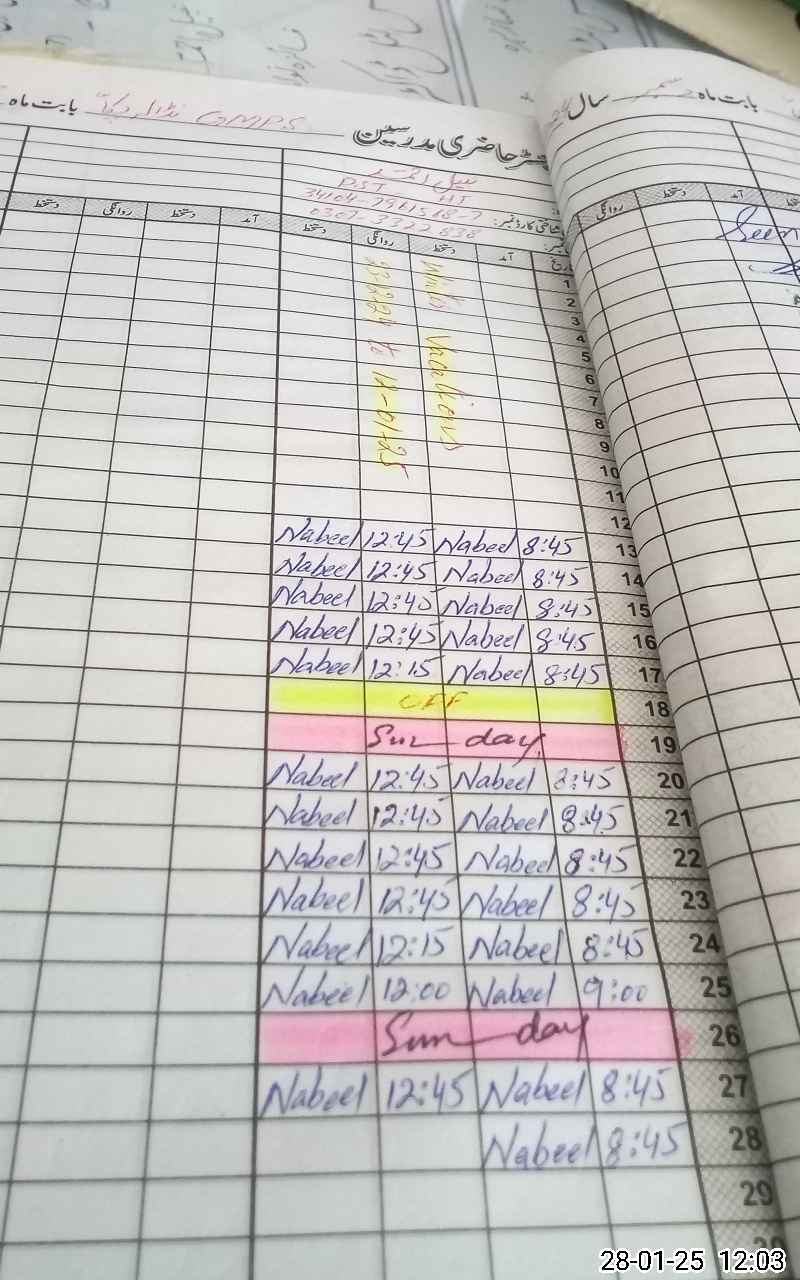 بابت ماہ دسمبر سال
رجسٹر حاضری مدرسین GMPS بابت ماہ
نبیل احمد
PST
34104-7961568-7
شناختی کارڈ نمبر:
0307-3322838
تاریخ آمد دستخط روانگی دستخط آمد دستخط روانگی دستخط
روانگی دستخط آمد
Seen
Winter Vacations
to 12-01-25
1
2
3
4
5
6
7
8
9
10
11
12
Nabeel 12:45 Nabeel 8:45 13
Nabeel 12:45 Nabeel 8:45 14
Nabeel 12:45 Nabeel 8:45 15
Nabeel 12:45 Nabeel 8:45 16
Nabeel 12:15 Nabeel 8:45 17
OFF 18
Sunday 19
Nabeel 12:45 Nabeel 8:45 20
Nabeel 12:45 Nabeel 8:45 21
Nabeel 12:45 Nabeel 8:45 22
Nabeel 12:45 Nabeel 8:45 23
Nabeel 12:15 Nabeel 8:45 24
Nabeel 12:00 Nabeel 9:00 25
Sunday 26
Nabeel 12:45 Nabeel 8:45 27
Nabeel 8:45 28
29
30
28-01-25 12:03